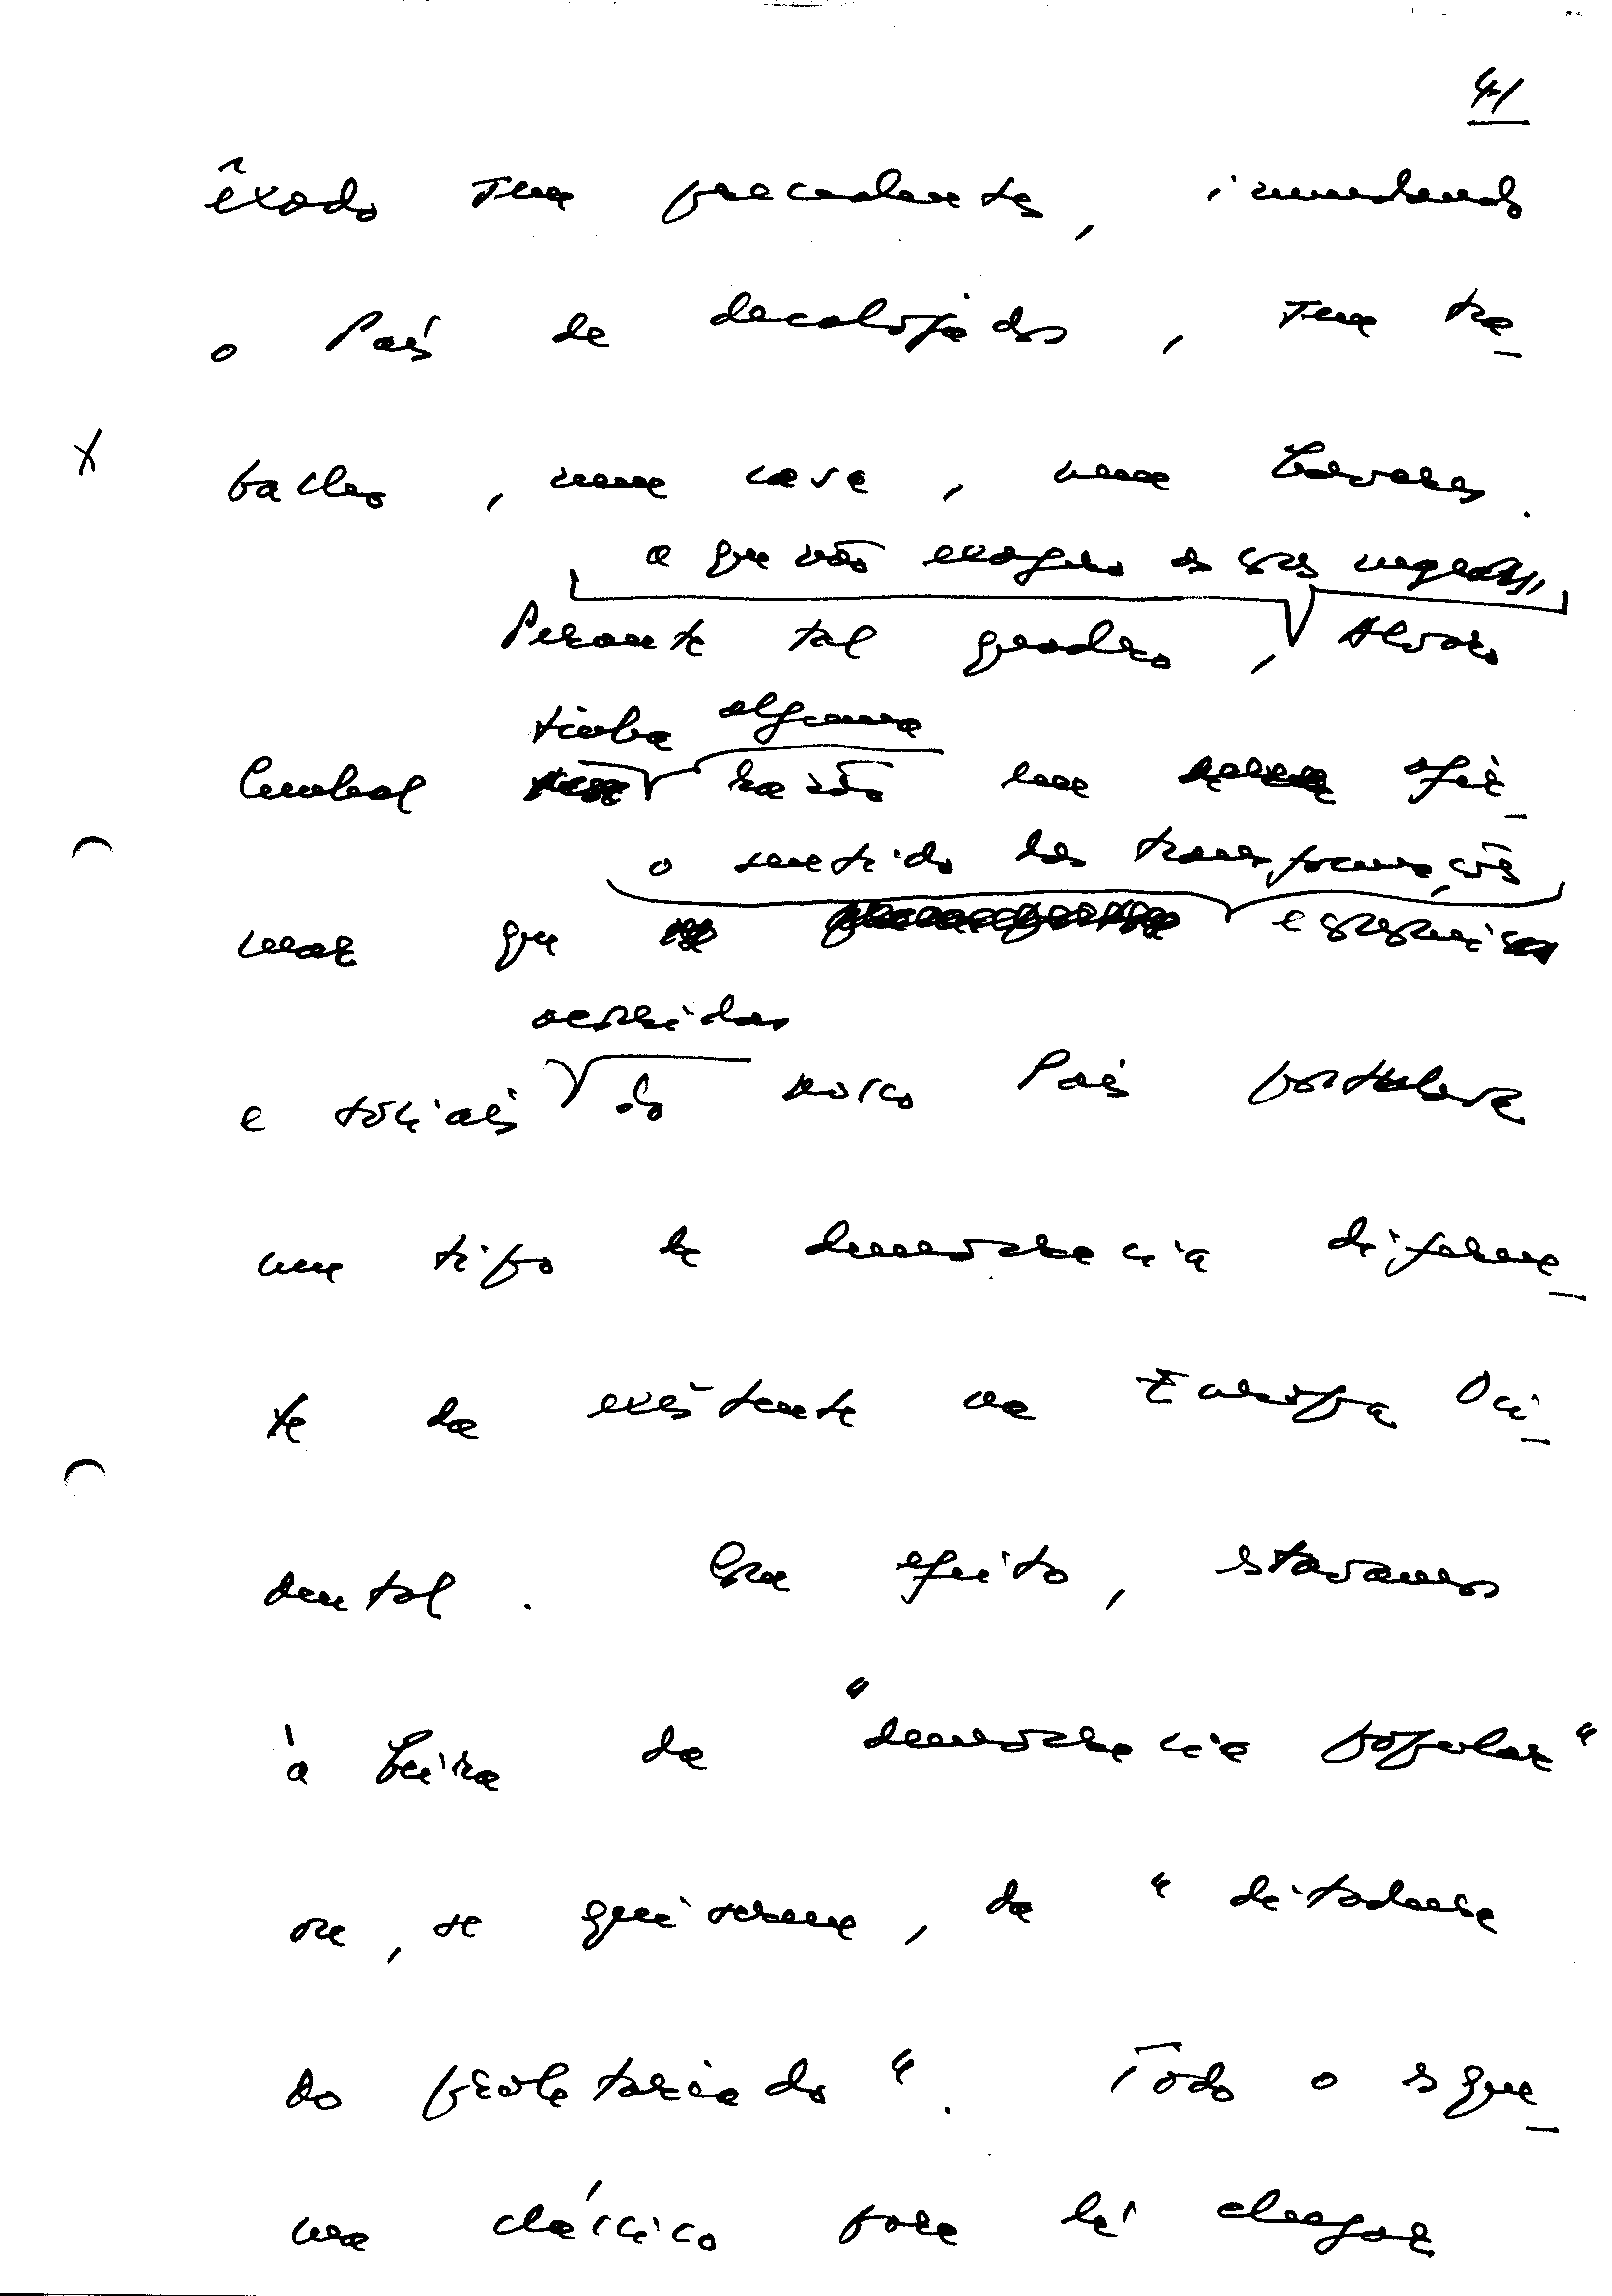 41
êxodo sem precedentes, inundando
o País de desalojados, sem tra-
balho, sem casa, sem haveres.
a que não escapam os seus
Perante tal quadro, Álvaro
tinha alguma
Cunhal razão em afir-
o sentido das transformações
mar que
ocorridas
e sociais do nosso País
um tipo de democracia diferen-
te da existente na Europa Oci-
dental. Com efeito, estavamos
à beira da "democracia popular"
ou, se quiserem, da "ditadura
do proletariado". Todo o esque-
ma clássico para lá chegar